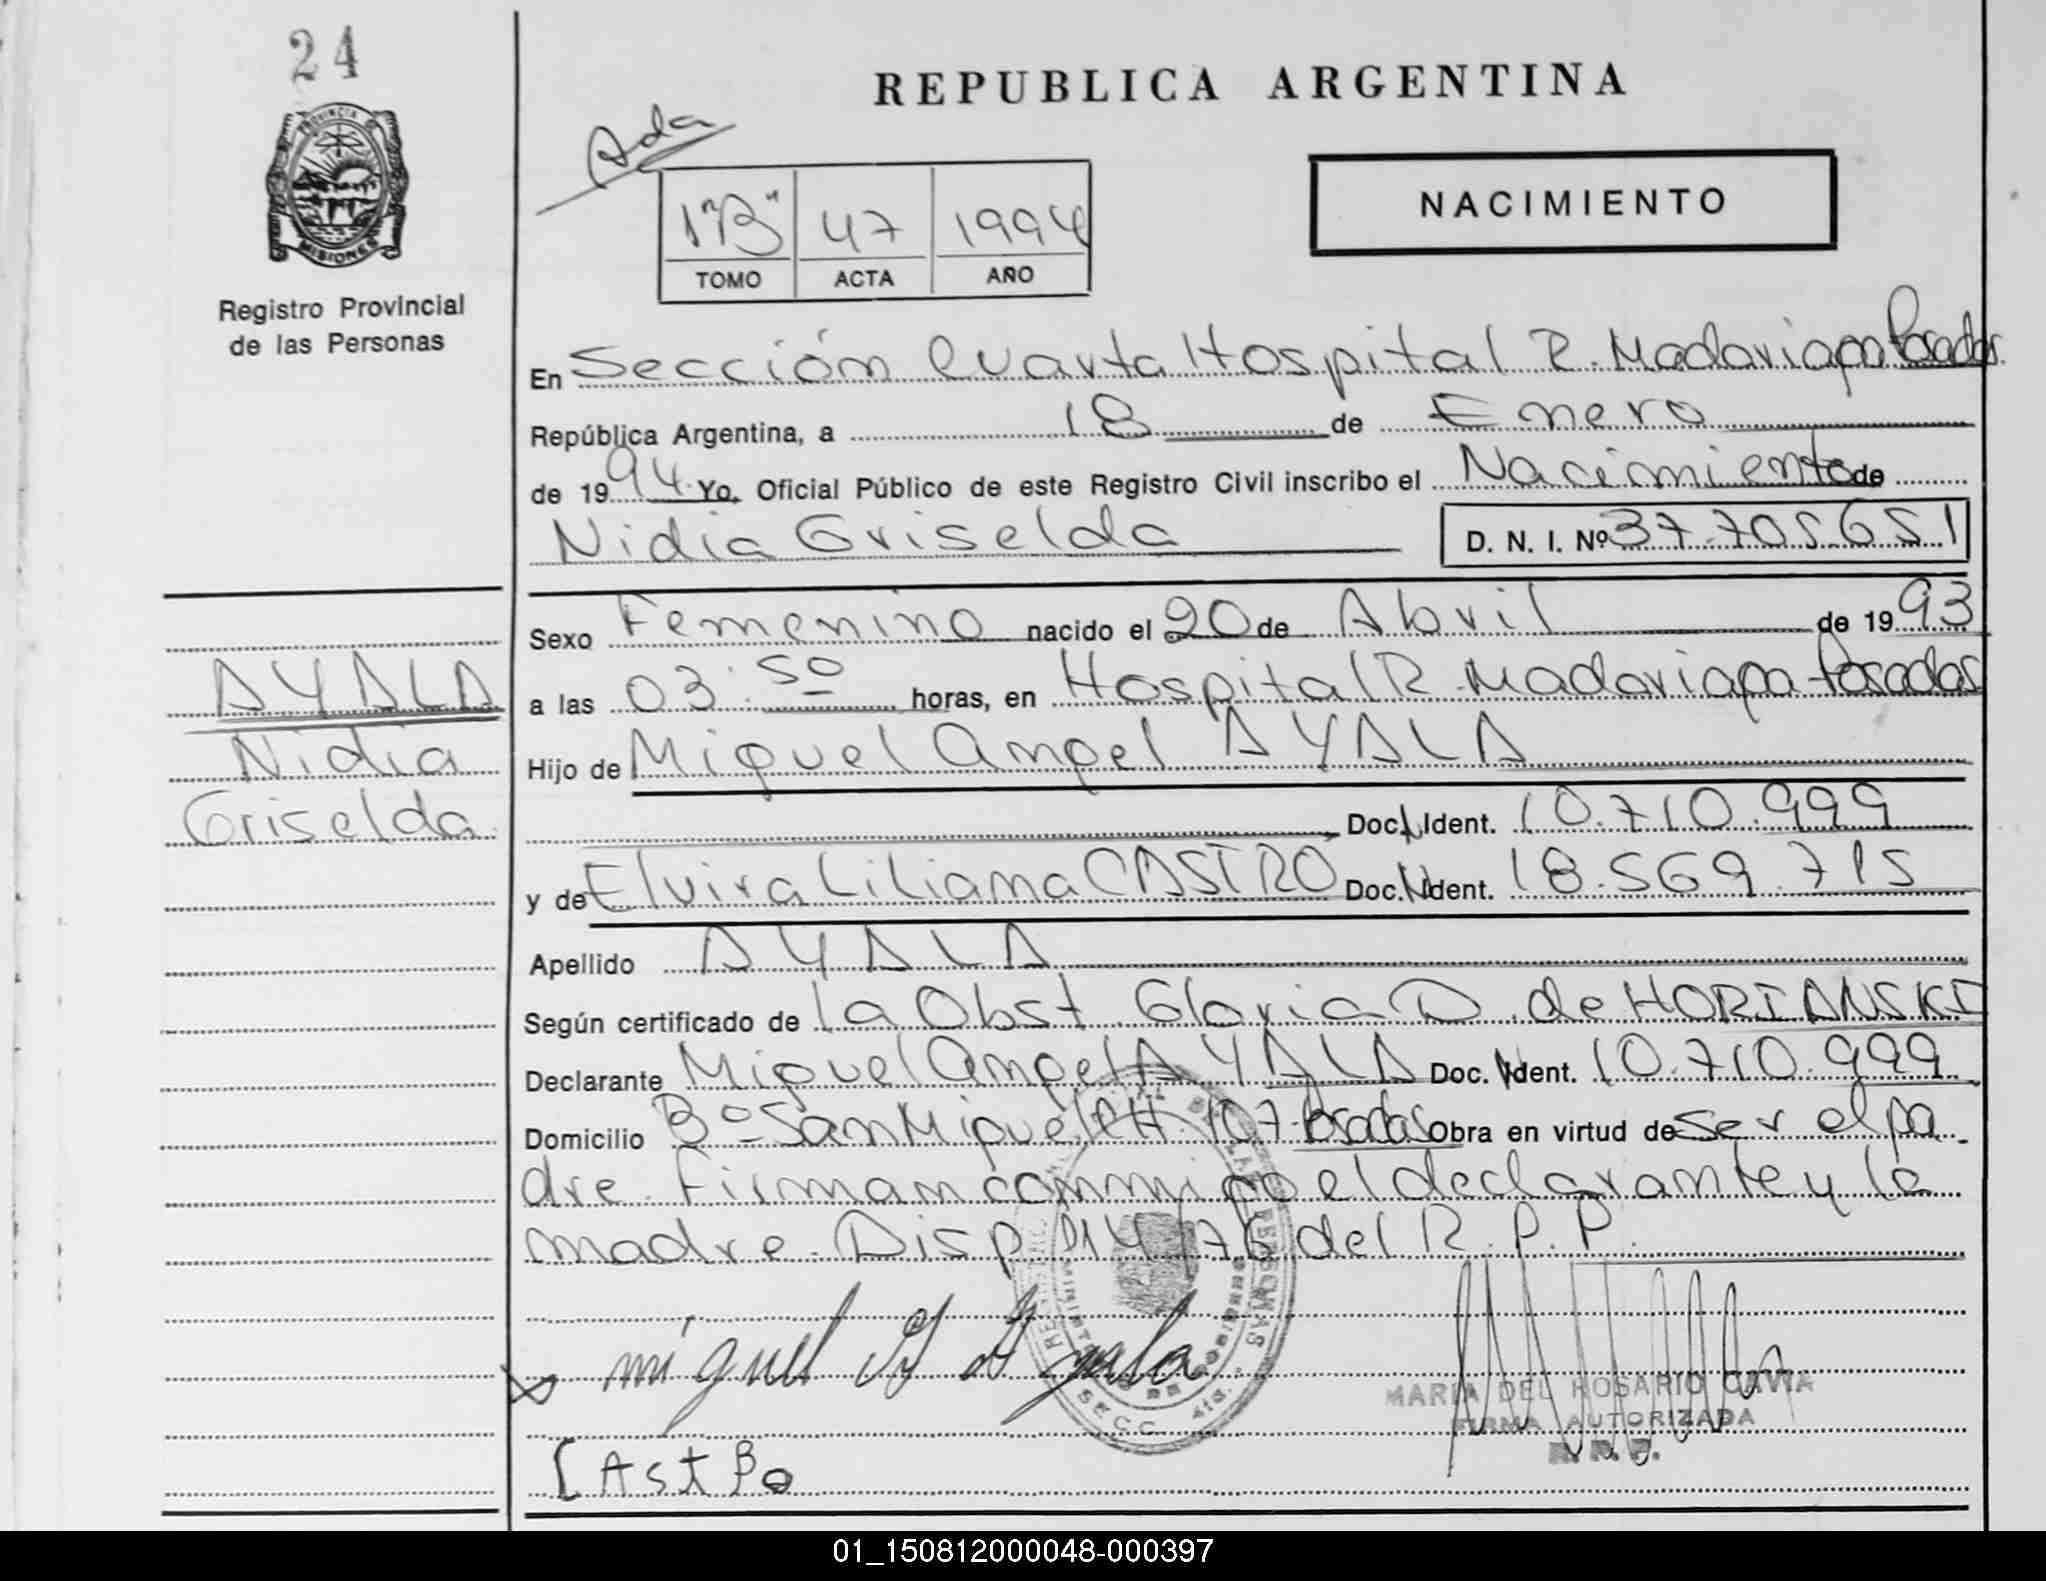 24
REPUBLICA ARGENTINA
Ada
PROVINCIA DE MISIONES
Registro Provincial
de las Personas
1"B" 47 1994
TOMO ACTA AÑO
NACIMIENTO
En Sección Cuarta Hospital R. Madariaga Posadas.
República Argentina, a 18 de Enero
de 1994. Yo, Oficial Público de este Registro Civil inscribo el Nacimiento de
Nidia Griselda D. N. I. Nº 37.705.651
Sexo Femenino nacido el 20 de Abril de 1993
a las 03:50 horas, en Hospital R. Madariaga Posadas
Hijo de Miguel Angel AYALA
Doc. N Ident. 10.710.999
y de Elvira Liliana CASTRO Doc. N Ident. 18.569.715
Apellido AYALA
Según certificado de la Obst. Gloria D. de HORIANSKI
Declarante Miguel Angel AYALA Doc. N Ident. 10.710.999
Domicilio Bº San Miguel CH. 107-Posadas Obra en virtud de ser el pa
dre. Firman conmigo el declarante y la
madre. Disp. 014/76 del R.P.P.
AYALA
Nidia
Griselda
miguel A Ayala
SECC. 4ta.
MARIA DEL ROSARIO CAVIA
FIRMA AUTORIZADA
R. P. P.
CAstRo
01_150812000048-000397